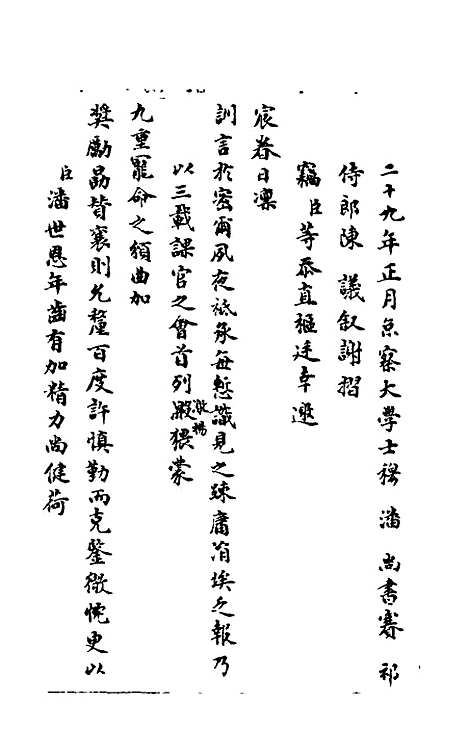 二十九年正月京察大學士穆 潘 尚書賽 祁
侍郎陳 議叙謝摺
竊臣等忝直樞廷幸邀
宸眷日凛
訓言於密勿夙夜祗承每慙識見之疎庸涓埃乏報乃
以三載課官之會首列敭揚殿猥蒙
九重寵命之頒曲加
奬勵勗皆襄則允釐百度許慎勤而克鑒微忱更以
臣潘世恩年齒有加精力尚健荷